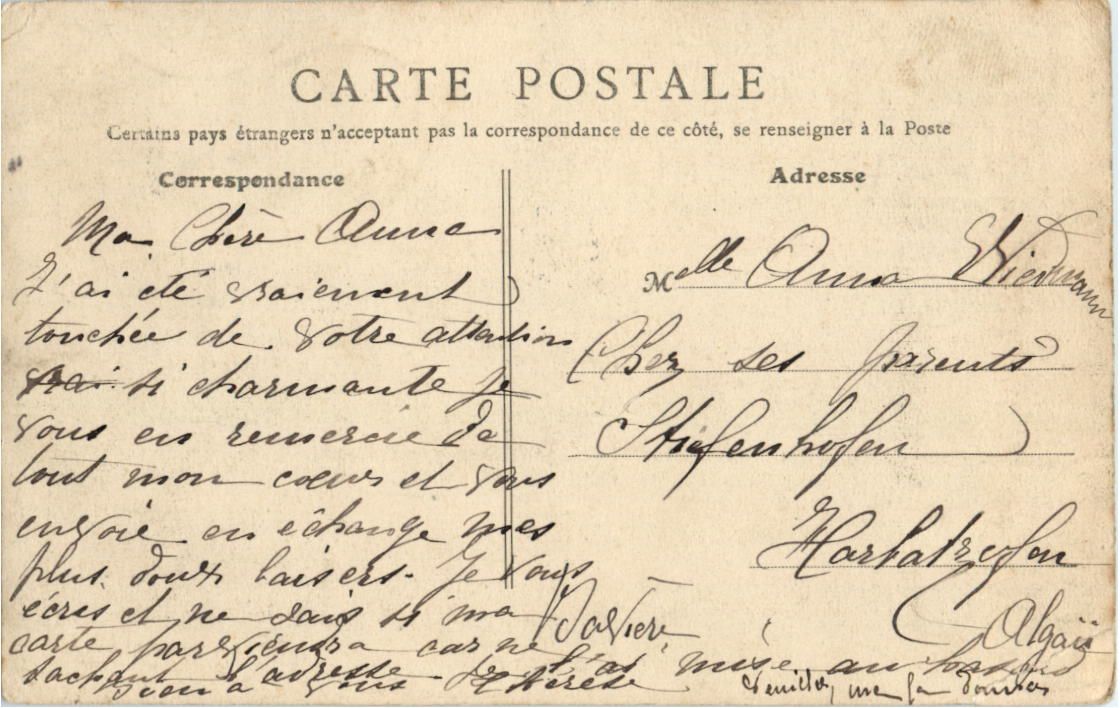 CARTE POSTALE
Certains pays étrangers n'acceptant pas la correspondance de ce côté, se renseigner à la Poste
Correspondance
Ma Chère Anna
J'ai été vraiement
touchée de votre attention
si charmante je
vous en remercie de
tout mon cœur et vous
envoie en échange mes
plus doux baisers. Je vous
écris et ne sais si ma
carte parviendra car ne
sachant l'adresse je l'ai mise au hasard
Bien à vous Thérèse
Veuillez me la donner
Adresse
Melle Anna Wiedmann
Chez ses parents
Stiefenhofen
Harbatzhofen
Bavière
Algaü